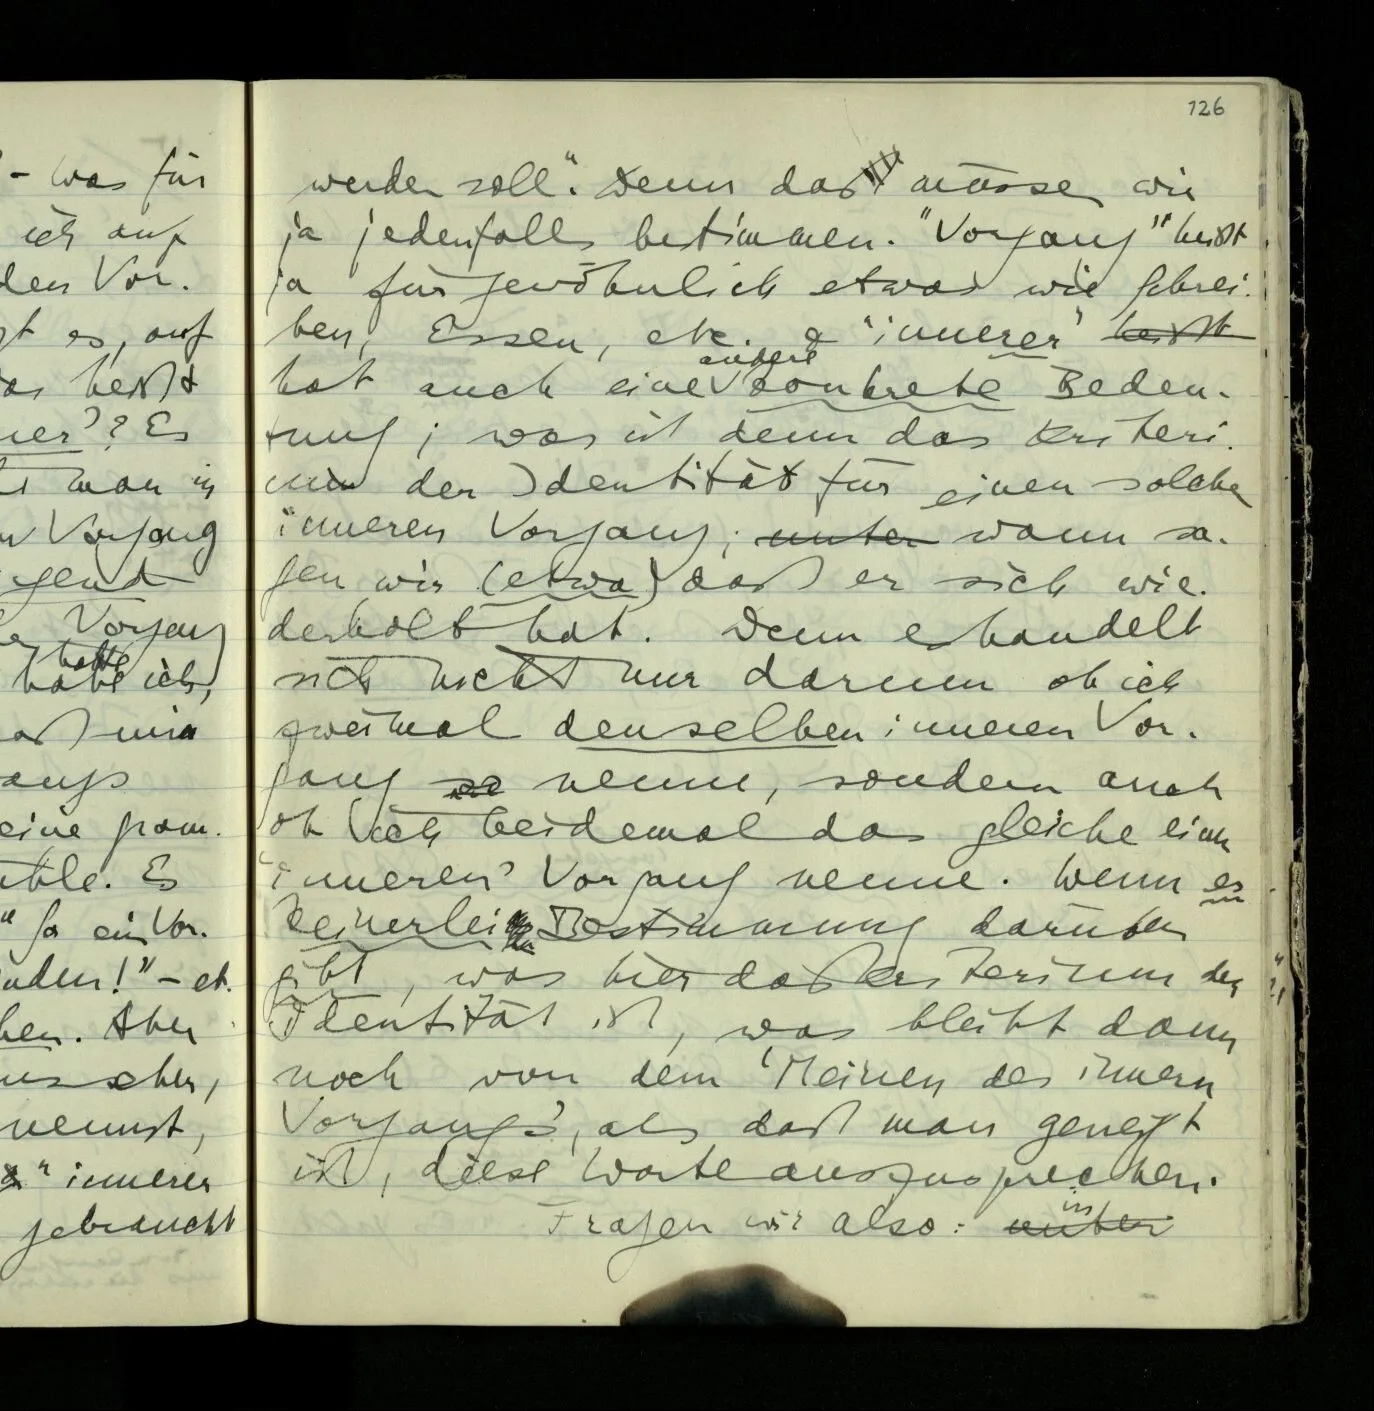 126
– was für
ich auf
den Vor-
es, auf
heißt
? Es
man in
Vorgang
Vorgang
hatte
habe ich,
mir
eine gram-
Es
" ja ein Vor-
!" – et-
. Aber
nennst,
" innerer
gebraucht
werden soll". Denn das müssen wir
ja jedenfalls bestimmen. "Vorgang" heißt
ja für gewöhnlich etwas wie Schrei-
ben, Essen, etc. & "innerer" heißt
andere
hat auch eine konkrete Bedeu-
tung; was ist denn das Kriteri-
um der Identität für einen solchen
inneren Vorgang; unter wann sa-
gen wir (etwa) daß er sich wie-
derholt hat. Denn es handelt
sich nicht nur darum ob ich
zweimal denselben inneren Vor-
gang nenne, sondern auch
ob ich beidemal das gleiche einen
'inneren' Vorgang nenne. Wenn es
keinerlei Bestimmung darüber
gibt, was hier das Kriterium der
Identität ist, was bleibt dann
noch von dem 'Meinen des innern
Vorgangs', als daß man geneigt
ist, diese Worte auszusprechen.
in
Fragen wir also: unter